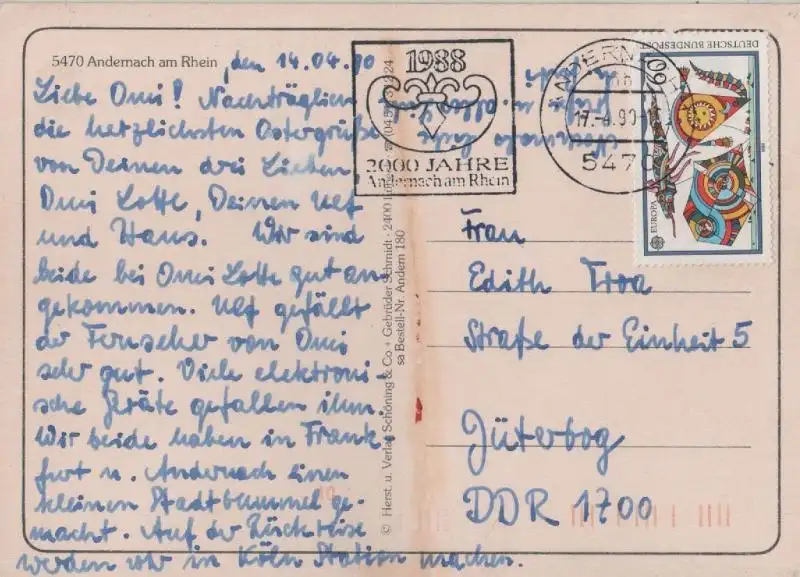 5470 Andernach am Rhein
, den 14.04.90
Liebe Omi! Nachträglich
die herzlichsten Ostergrüße
von Deinen drei Lieben
Omi Lotte, Deinen Ulf
und Hans. Wir sind
beide bei Omi Lotte gut an-
gekommen. Ulf gefällt
der Fernseher von Omi
sehr gut. Viele elektroni-
sche Geräte gefallen ihm.
Wir beide haben in Frank-
furt u. Andernach einen
kleinen Stadtbummel ge-
macht. Auf der Rückreise
werden wir in Köln Station machen.
© Herst. u. Verlag Schöning & Co + Gebrüder Schmidt · 2400
sa Bestell-Nr. Andern 180
1988
2000 JAHRE
Andernach am Rhein
17.-4.90
547
DEUTSCHE BUNDESPOST
60
EUROPA
Frau
Edith Troa
Straße der Einheit 5
Jüterbog
DDR 1700